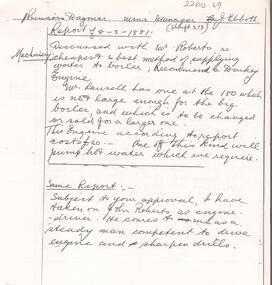 2260.49
Princess Dagmar mine manager J. Ebbott
Report 8-3-1881. (Shaft 213)
Discussed with W. Roberts re
Machinery cheapest & best method of supplying
water to boiler, Recommend Donkey
Engine
Mr. Lansell has one at the 180 which
is not large enough for the big
boiler, and which is to be changed
or sold for a larger one.
This Engine according to report
costs £20 - One of this kind will
pump hot water which we require.
Same Report :-
Subject to your approval, I have
taken on John Roberts as engine-
driver. He comes to me as a
steady man competent to drive
engine and sharpen drills.